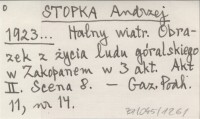 STOPKA Andrzej
1923... Halny wiatr. Obra-
zek z życia ludu góralskiego
w Zakopanem w 3 akt. Akt
II. Scena 8. — Gaz. Podh.
11, nr 14.